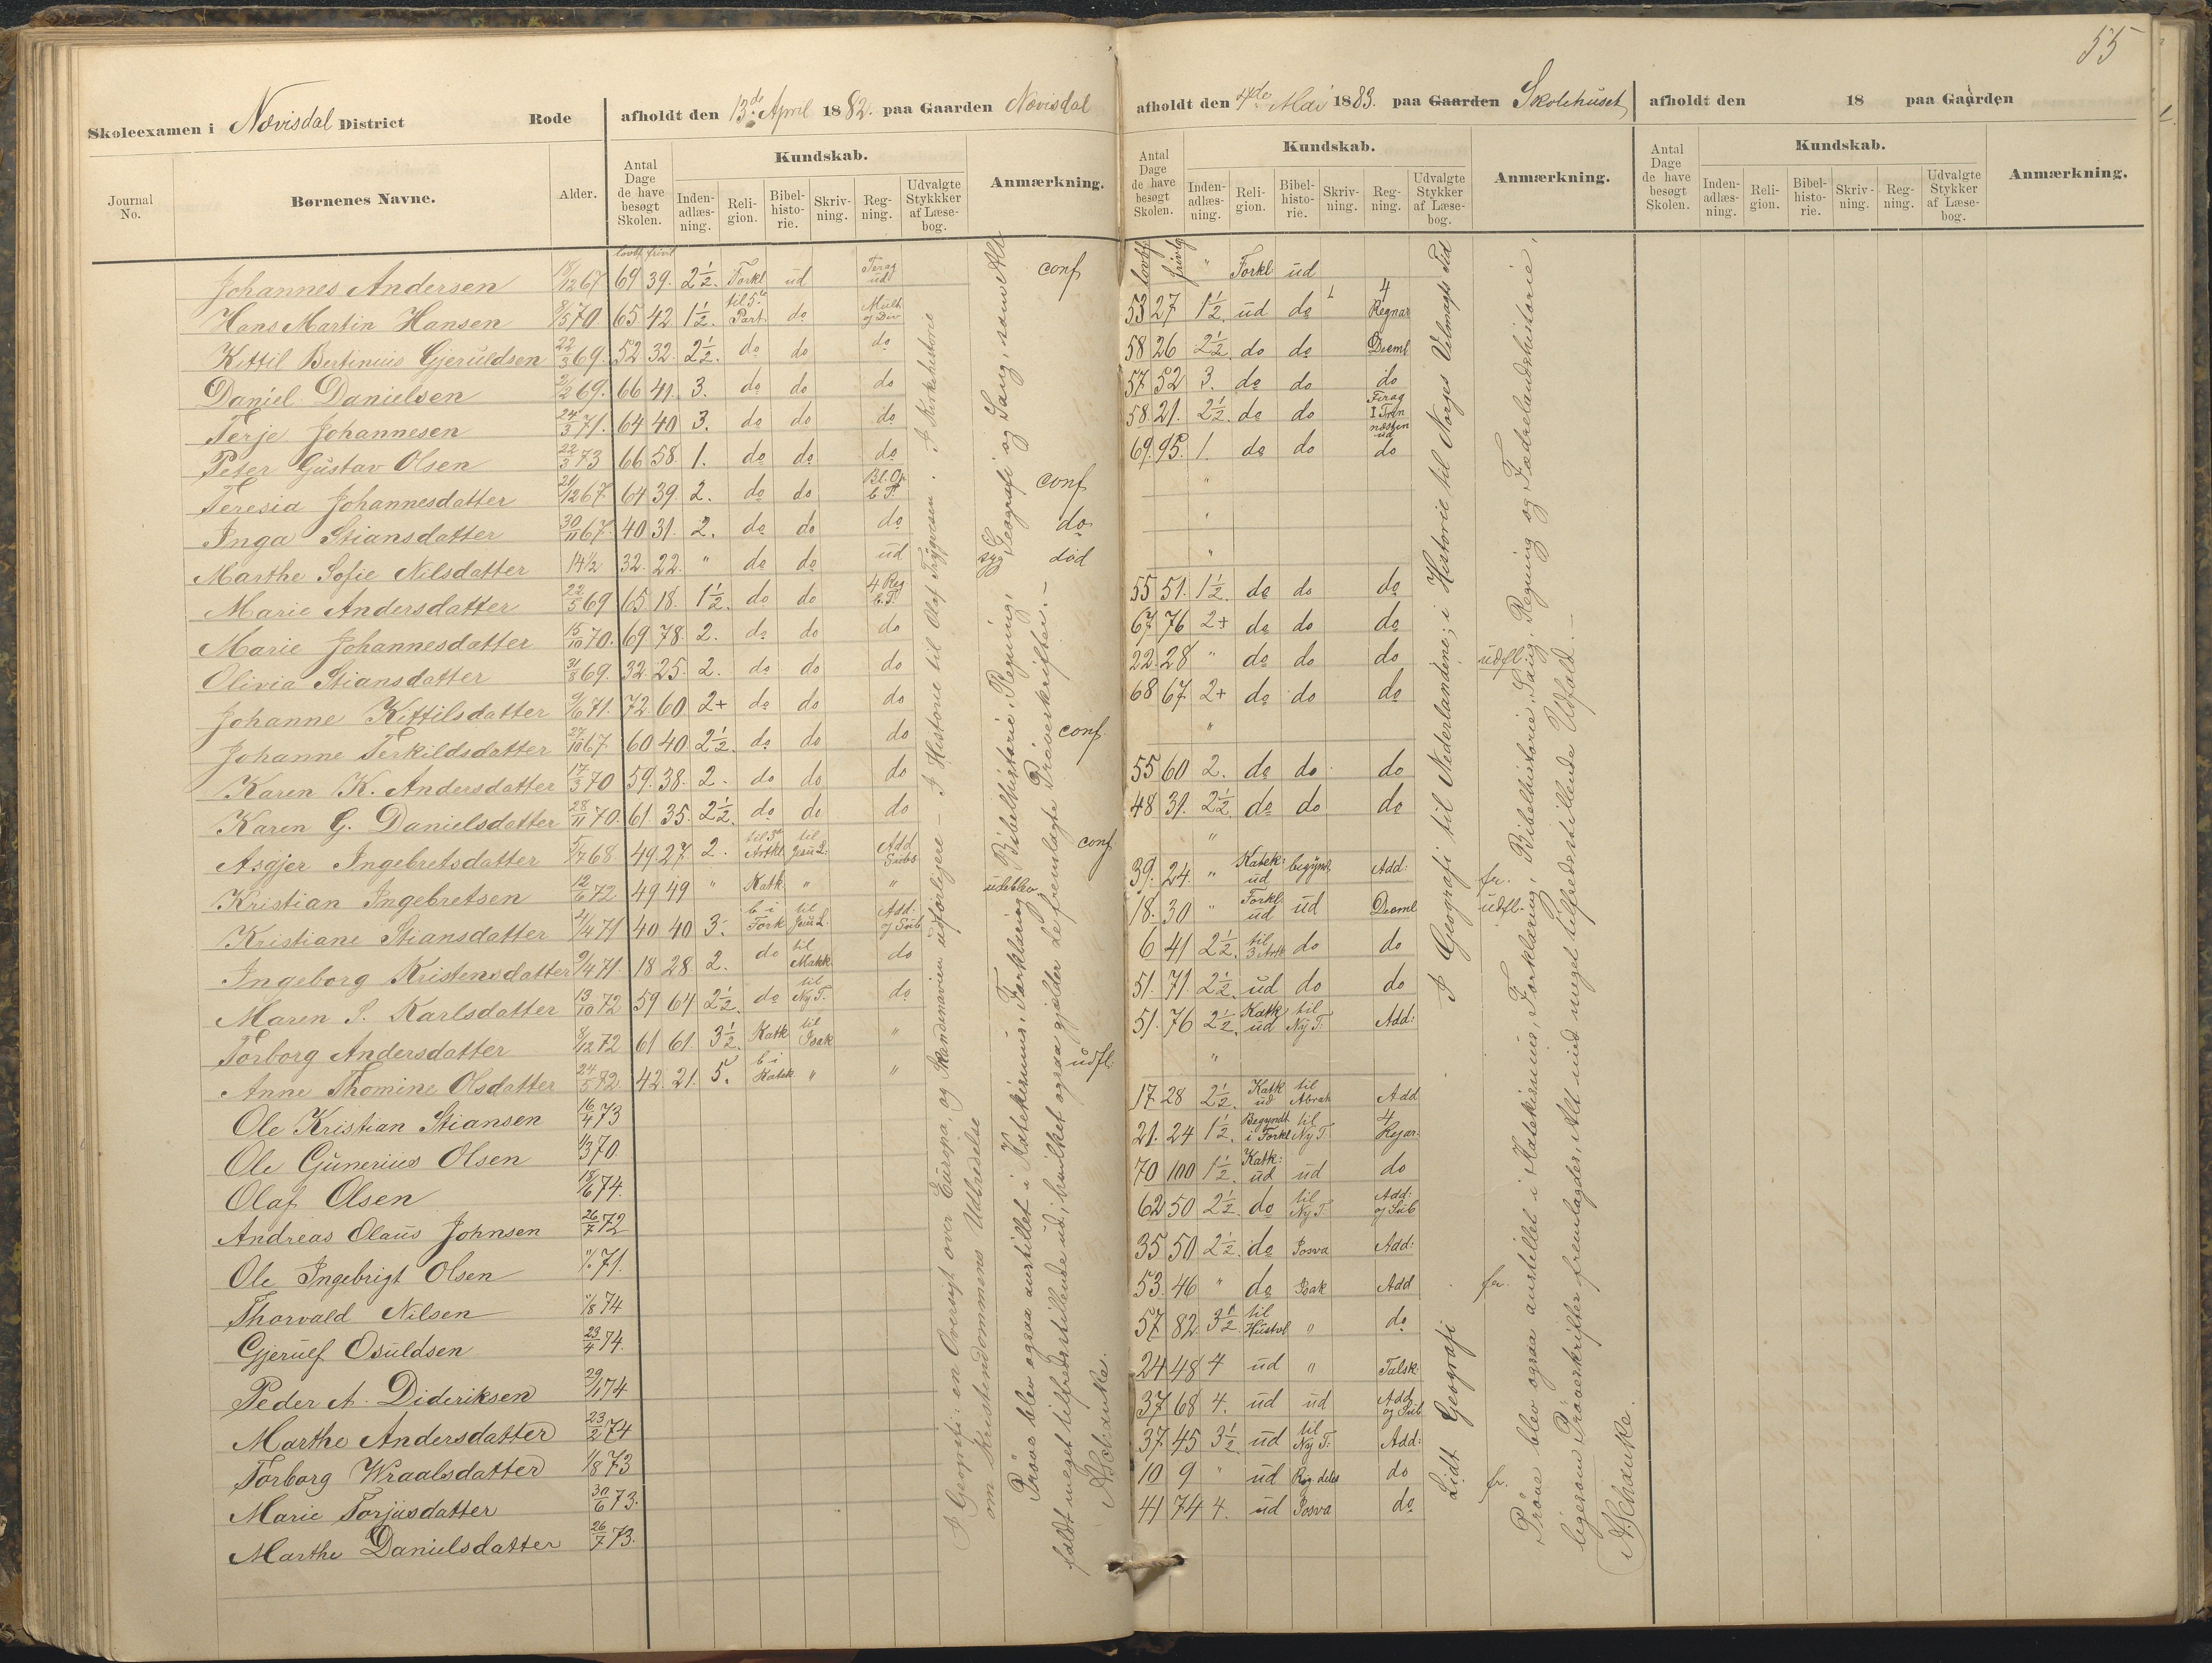 55
Skoleexamen i Nævisdal District Rode afholdt den 13de April 1882. paa Gaarden Nævisdal
Journal No. Børnenes Navne. Alder. Antal Dage de have besøgt Skolen. Kundskab. Inden-adlæs-ning. Reli-gion. Bibel-histo-rie. Skriv-ning. Reg-ning. Udvalgte Stykker af Læse-bog. Anmærkning.
lovbf. frivil
Johannes Andersen 67 69 39. 2½. Forkl ud ud conf
Hans Martin Hansen 8/5 70 65 42 1½. til 5te Part. do Mult og Div
Kittil Bertinius Gjeruldsen 22/3 69. 52 32. 2½. do do do
Daniel Danielsen 2/2 69. 66 41. 3. do do do
Terje Johannesen 24/3 71. 64 40 3. do do do
Peter Gustav Olsen 22/3 73 66 58. 1. do do do
Teresia Johannesdatter 21/12 67 64 39. 2. do do conf
Inga Stiansdatter 30/11 67. 40 31. 2. do do do do
Marthe Sofie Nilsdatter 14½ 32. 22. " do do ud syg død
Marie Andersdatter 22/5 69 65. 18. 1½. do do 4 Reg b.T.
Marie Johannesdatter 15/10 70. 69. 78. 2. do do do
Olivia Stiansdatter 31/8 69. 32. 25. 2. do do do
Johanne Kittilsdatter 9/6 71. 72. 60 2+ do do do
Johanne Terkildsdatter 27/10 67 60 40 2½. do do do conf.
Karen K. Andersdatter 17/3 70 59. 38. 2. do do do
Karen G. Danielsdatter 28/11 70. 61. 35. 2½. do do do
Asgjer Ingebretsdatter 5/7 68 49. 27 2. til 3die Artkl til Jesu L. Add Subs conf
Kristian Ingebretsen 12/6 72. 49 49 " Katk " " udeblev
Kristiane Stiansdatter 2/4 71 40 40 3. b i Fork til Jesu L. Add: og Sub
Ingeborg Kristensdatter 9/4 71. 18 28 2. do til Makk. do
Maren S. Karlsdatter 13/10 72 59 64 2½. do til Ny T. do
Torborg Andersdatter 8/12 72 61 61. 3½. Katk til Isak "
Anne Thomine Olsdatter 24/5 72. 42. 21. 5. b i Katek " " udfl.
Ole Kristian Stiansen 16/4 73
Ole Gunerius Olsen 1/3 70.
Olaf Olsen 18/6 74.
Andreas Olaus Johnsen 26/7 72
Ole Ingebrigt Olsen 71.
Thorvald Nilsen 11/8 74
Gjerulf Osuldsen 23/4 74.
Peder A. Dideriksen 29/1 74
Marthe Andersdatter 23/2 74
Torborg Wraalsdatter 1/8 73
Marie Torjusdatter 30/6 73.
Marthe Danielsdatter 26/7 73.
I Geografi: en Oversigt over Europa, og Skandinavien udførligere – I Historie til Olaf Trygvesen. I Kirkehistorie
om Kristendommens Udbredelse
Prøve blev ogsaa anstillet i Katekismus, Forklaring, Bibelhistorie, Regning, Geografi og Sang, samt Alt
faldt meget tilfredsstillende ud, hvilket ogsaa gjelder de fremlagte Prøveskrifter. –
A Schanke.
afholdt den 4de Mai 1883. paa Gaarden Skolehuset
Antal Dage de have besøgt Skolen. Kundskab. Inden-adlæs-ning. Reli-gion. Bibel-histo-rie. Skriv-ning. Reg-ning. Udvalgte Stykker af Læse-bog. Anmærkning.
lovbf. frivlg " Forkl ud
53 27 1½. ud do 4 Regnar
58 26 2½. do do Deeml
57. 52 3. do do do
58. 21. 2½. do do Firag I Trin næsten ud
69. 95. 1. do do do
"
"
"
55 51. 1½. do do do
67 76 2+ do do do
22. 28 " do do do udfl.
68 67. 2+ do do do
"
55 60 2. do do do
48 31. 2½. do do do
"
39. 24. " Katek: ud begynt. Add: fr.
18. 30 " Forkl. ud ud Deeml udfl.
6 41 2½. til 3 Artk do do
51. 71. 2½. ud do do
51. 76 2½. Katk ud til Ny T. Add:
"
17. 28 2½. Katk ud til Abrah Add
21. 24 1½. Begyndt i Forkl til Ny T. 4 Rejar.
70 100 1½. Katk: ud ud do
62 50 2½. do til Ny T Add: og Sub
35 50 2½. do Josva Add:
53. 46 " do Isak Add fr.
57 82. 3½. til Hustvl " do
24 48 4 ud " Talsk.
37 68 4. ud ud Add og Sub
37. 45 3½ ud til Ny T: Add:
10 9 " ud do fr.
41 74 4. ud Josva do
I Geografi til Nederlandene; i Historie til Norges Velmagts Tid
Lidt Geografi
Prøve blev ogsaa anstillet i Katekismus, Forklaring, Bibelhistorie, Sang, Regning og Fædrelandshistorie,
ligesom Prøveskrifter fremlagdes, Alt med meget tilfredsstillende Udfald. –
A Schanke.
afholdt den 18 paa Gaarden
Antal Dage de have besøgt Skolen. Kundskab. Inden-adlæs-ning. Reli-gion. Bibel-histo-rie. Skriv-ning. Reg-ning. Udvalgte Stykker af Læse-bog. Anmærkning.